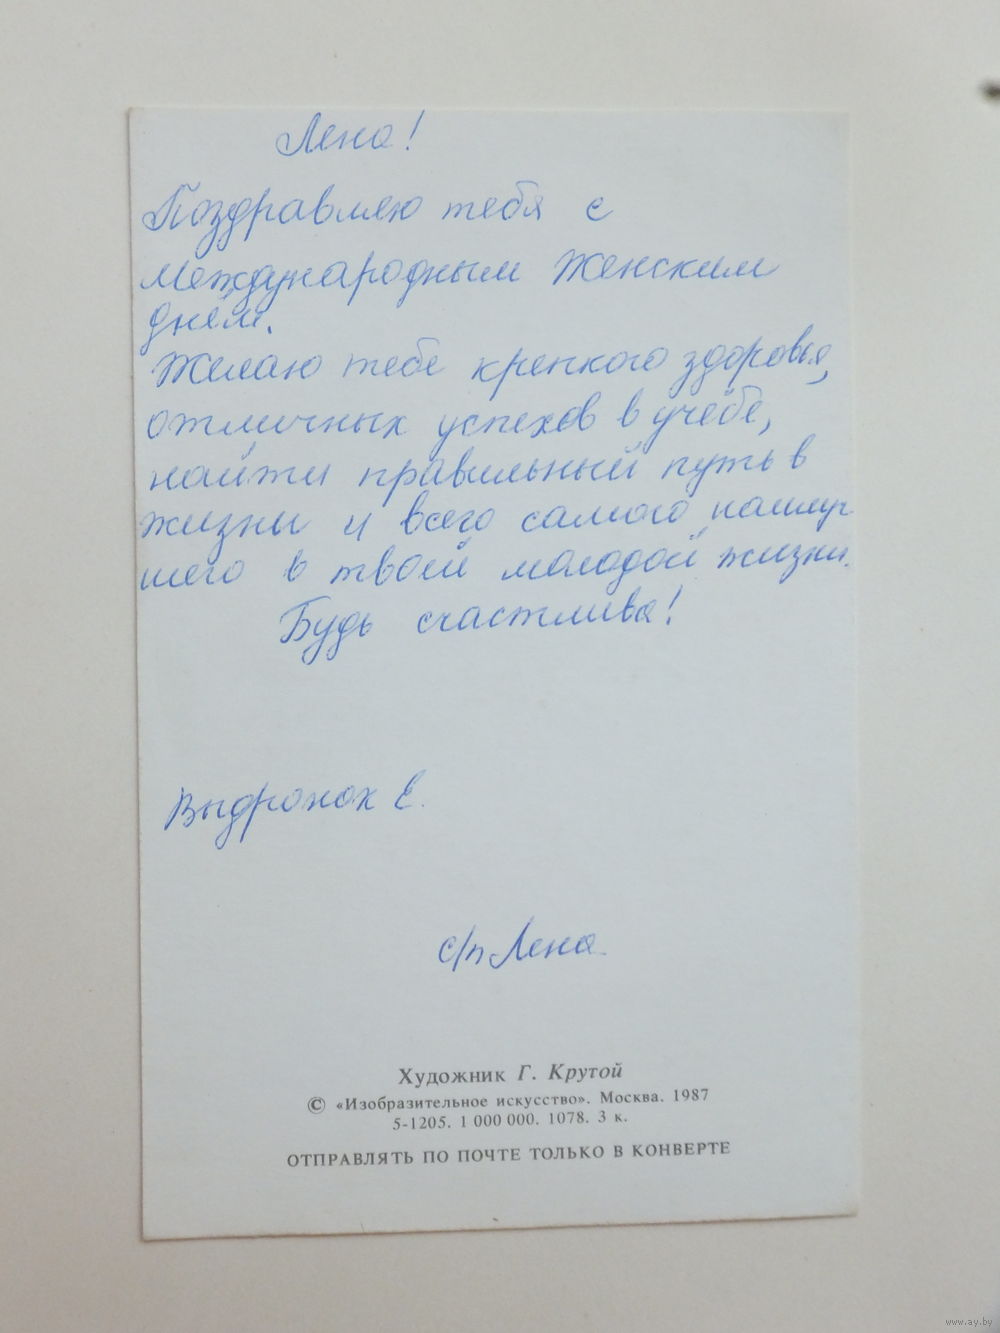 Лена!
Поздравляю тебя с
Международным Женским
днём.
Желаю тебе крепкого здоровья,
отличных успехов в учёбе,
найти правильный путь в
жизни и всего самого наилуч
шего в твоей молодой жизни.
Будь счастлива!
Выдронок Е.
с/п Лена
Художник Г. Крутой
© «Изобразительное искусство». Москва. 1987
5-1205. 1 000 000. 1078. 3 к.
ОТПРАВЛЯТЬ ПО ПОЧТЕ ТОЛЬКО В КОНВЕРТЕ
www.ay.by